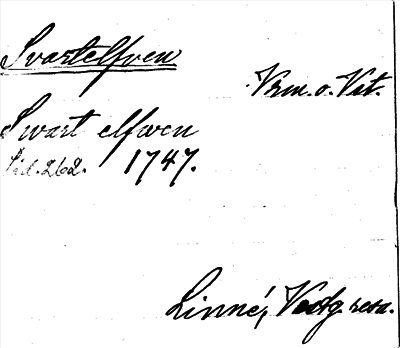 Svartelfven
Vrm. o. Vst.
Swart elfwen
Sid. 262. 1747.
Linné, Vestg. resa.